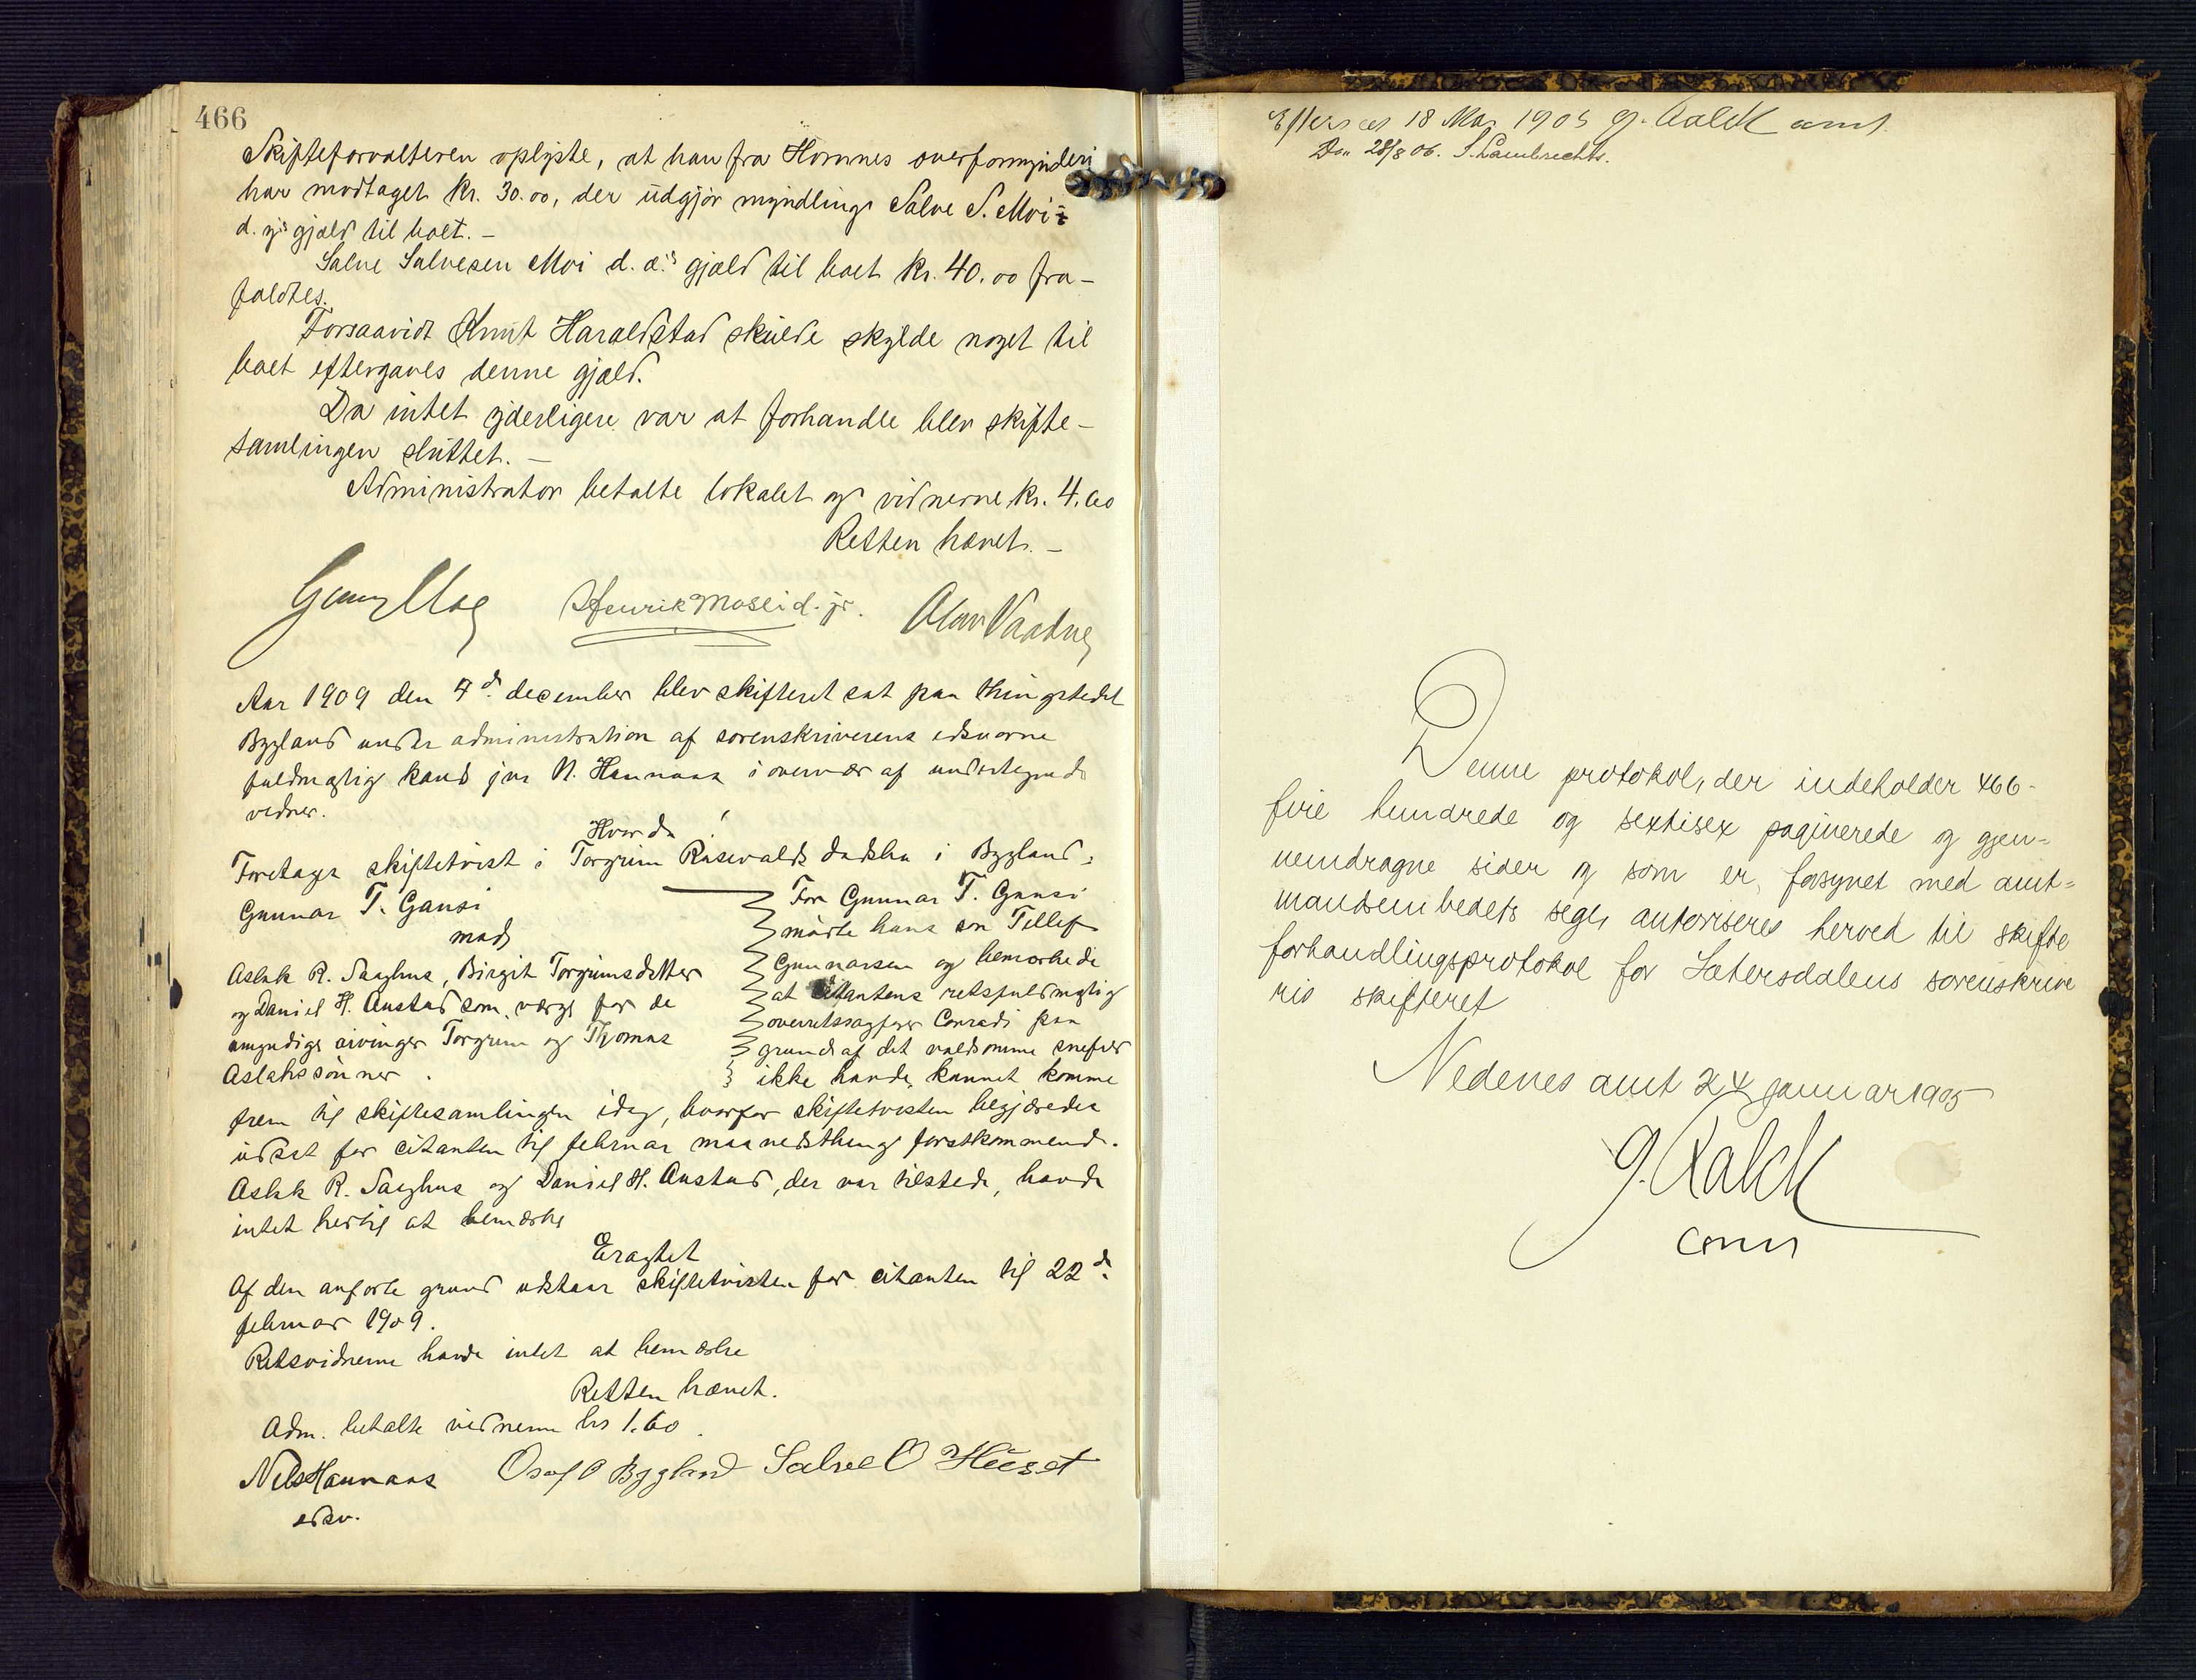 466
Skifteforvalteren oplyste, at han fra Hornnes overformynderi
har modtaget kr. 30.00, der udgjør myndling Salve S. Moi
d. y's gjæld til boet. –
Salve Salvesen Moi d. æ's gjæld til boet kr. 40.00 fra-
faldtes.
Forsaavidt Knut Haraldstad skulde skylde noget til
boet eftergaves denne gjæld.
Da intet yderligere var at forhandle blev skifte-
samlingen sluttet. –
Administrator betalte lokalet og vidnerne kr. 4.60
Retten hævet. –
Henrik Moseid. jr. Olav Vaadne
Aar 1909 den 7d. december blev skifteret sat paa thingstedet
Bygland under administration af sorenskriverens edsvorne
fuldmægtig kand jur N. Hannaas i overvær af undertegnede
vidner.
Hvorda!
Foretages skiftetvist i Torgrim Risvolds dødsbo i Bygland:
Gunnar T. Gausi
mod
Aslak R. Saghus, Birgit Torgrimsdotter
og Daniel H. Austad som værge for de
umyndige arvinger Torgrim og Thomas
Aslakssønner.
For Gunnar T. Gausi
mødte hans søn Tellef
Gunnarsen og bemærkede
at citantens retsfuldmægtig
overretssagfører Conradi paa
grund af det voldsomme snefald
ikke havde kunnet komme
frem til skiftesamlingen idag, hvorfor skiftetvisten begjæredes
udsat for citanten til februar maanedsthing førstkommende.
Aslak R. Saghus og Daniel H. Austad, der var tilstede, havde
intet hertil at bemærke
Eragtet
Af den anførte grund udstaar skiftetvisten for citanten til 22d.
februar 1909.
Retsvidnerne havde intet at bemærke
Retten hævet.
Adm. betalte vidnerne kr 1.60.
Nils Hannaas Osuf O Bygland Salve O Heeset
edsv.
Efterseet 18 Mai 1905 G. Kalck amt.
Do. 28/8 06. S. Lambrechts.
Denne protokol, der indeholder 466-
fire hundrede og sextisex paginerede og gjen-
nemdragne sider og som er forsynet med amt-
mandsembedets segl, autoriseres herved til skifte
forhandlingsprotokol for Sætersdalens sorenskrive
ris skifteret
Nedenes amt 24 januar 1905
G. Kalck
const